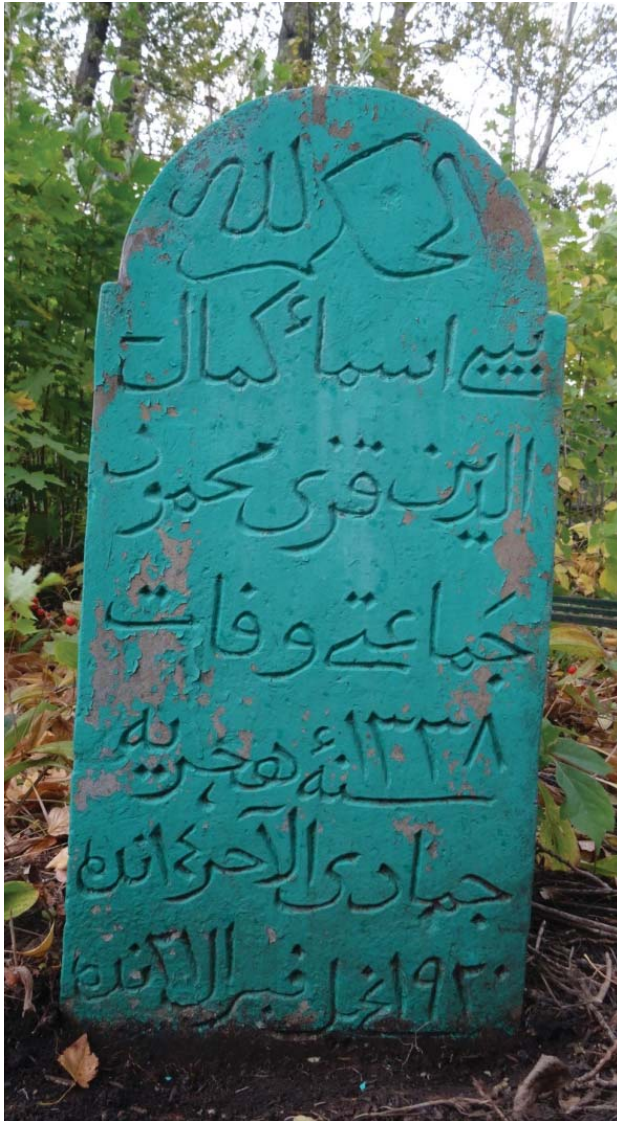 الحكم لله
بيبي اسماء كمال
الدين قزى محمود
جماعتى وفات
١٣٣٨ سنۀ هجريه
جمادى الآخر انده
١٩٢٠ نجى فبرال نده